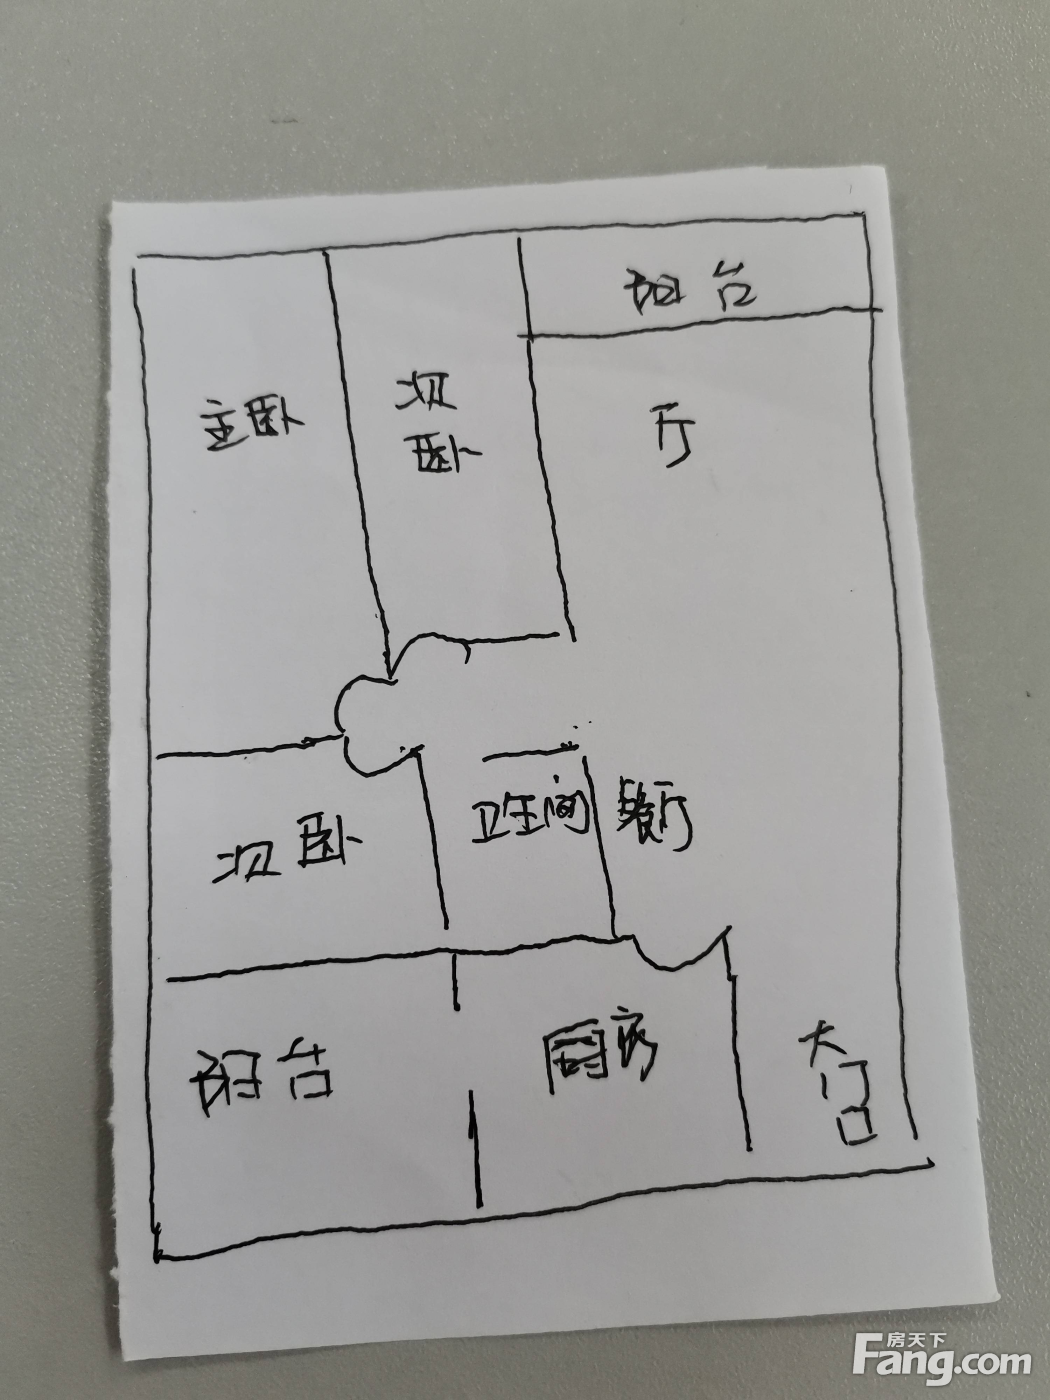 阳台
主卧
次
卧
厅
次卧
卫生间
餐厅
阳台
厨房
大
门
口
房天下
Fang.com